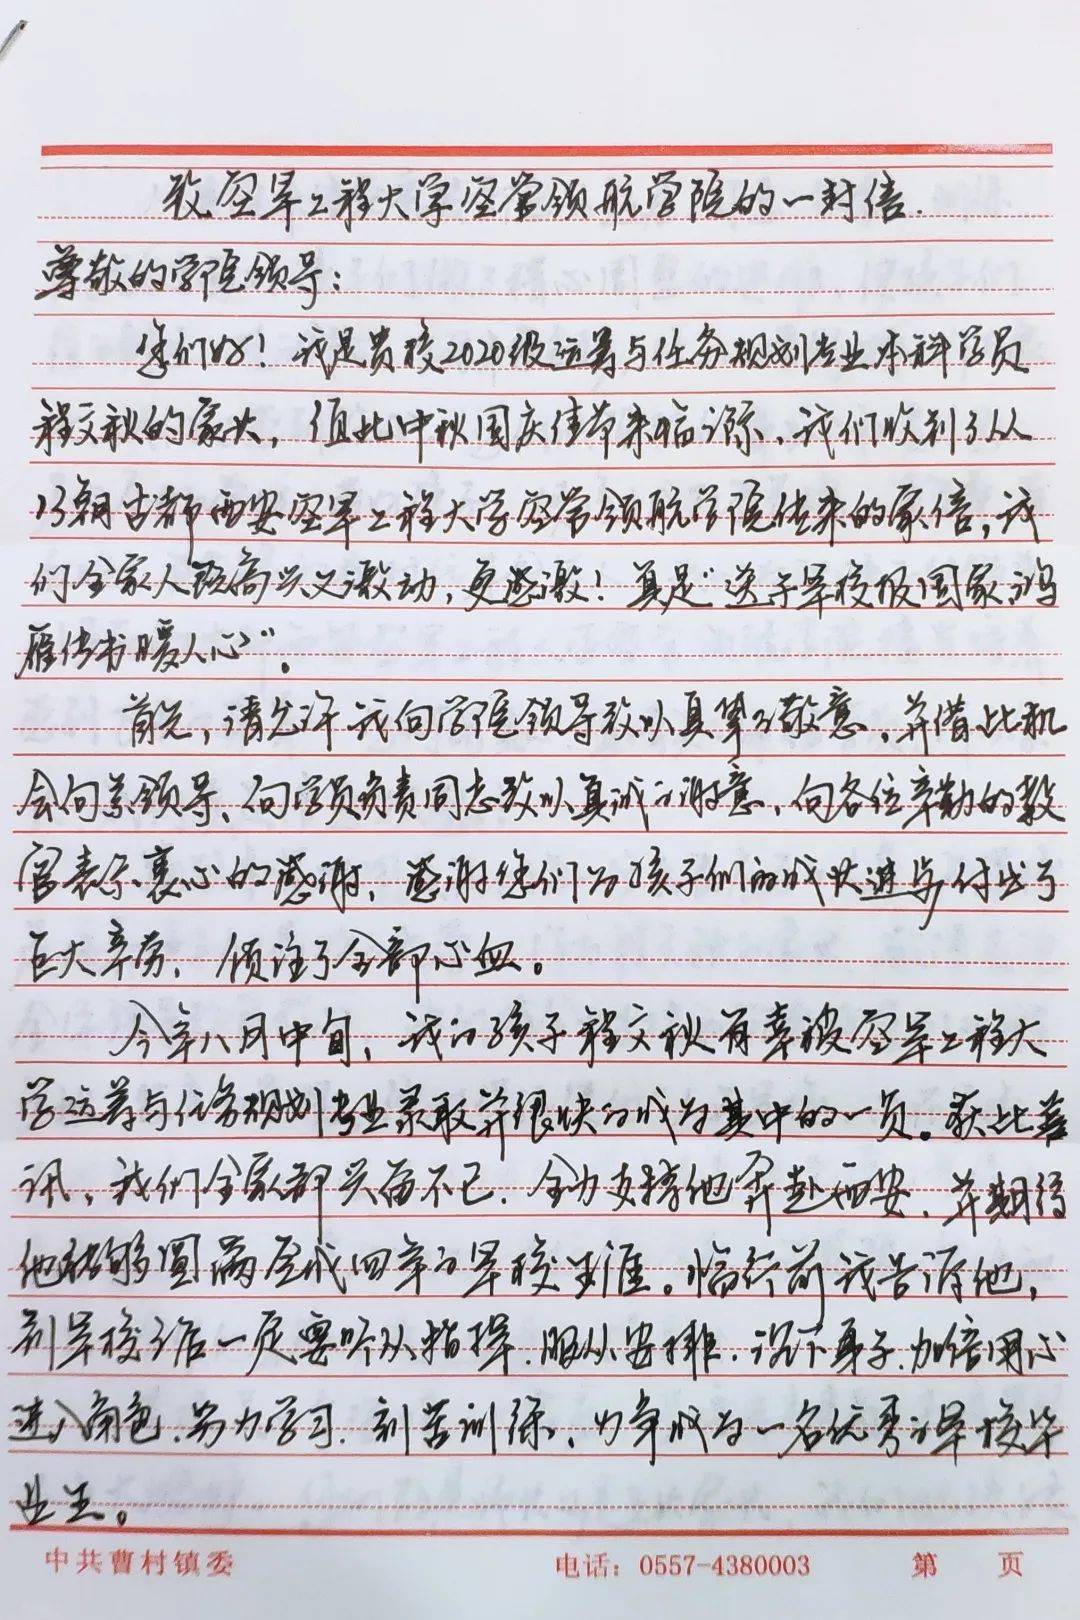 致空军工程大学空管领航学院的一封信.
尊敬的学院领导：
您们好！我是贵校2020级运筹与任务规划专业本科学员
程文秋的家长，值此中秋国庆佳节来临之际，我们收到了从
13朝古都西安空军工程大学空管领航学院传来的家信，我
们全家人既高兴又激动，更感激！真是“送子军校报国家，鸿
雁传书暖人心”。
首先，请允许我向学院领导致以真挚的敬意，并借此机
会向系领导、向学员负责同志致以真诚的谢意，向各位辛勤的教
官表示衷心的感谢，感谢您们为孩子们的成长进步付出了
巨大辛劳，倾注了全部心血。
今年八月中旬，我的孩子程文秋有幸被空军工程大
学运筹与任务规划专业录取并很快的成为其中的一员。获此喜
讯，我们全家都兴奋不已，全力支持他奔赴西安，并期待
他能够圆满完成四年的军校生涯。临行前我告诉他，
到军校后一定要听从指挥，服从安排，沉下身子，加倍用心
进入角色，努力学习，刻苦训练，力争成为一名优秀的军校毕
业生。
中共曹村镇委 电话：0557-4380003 第 页